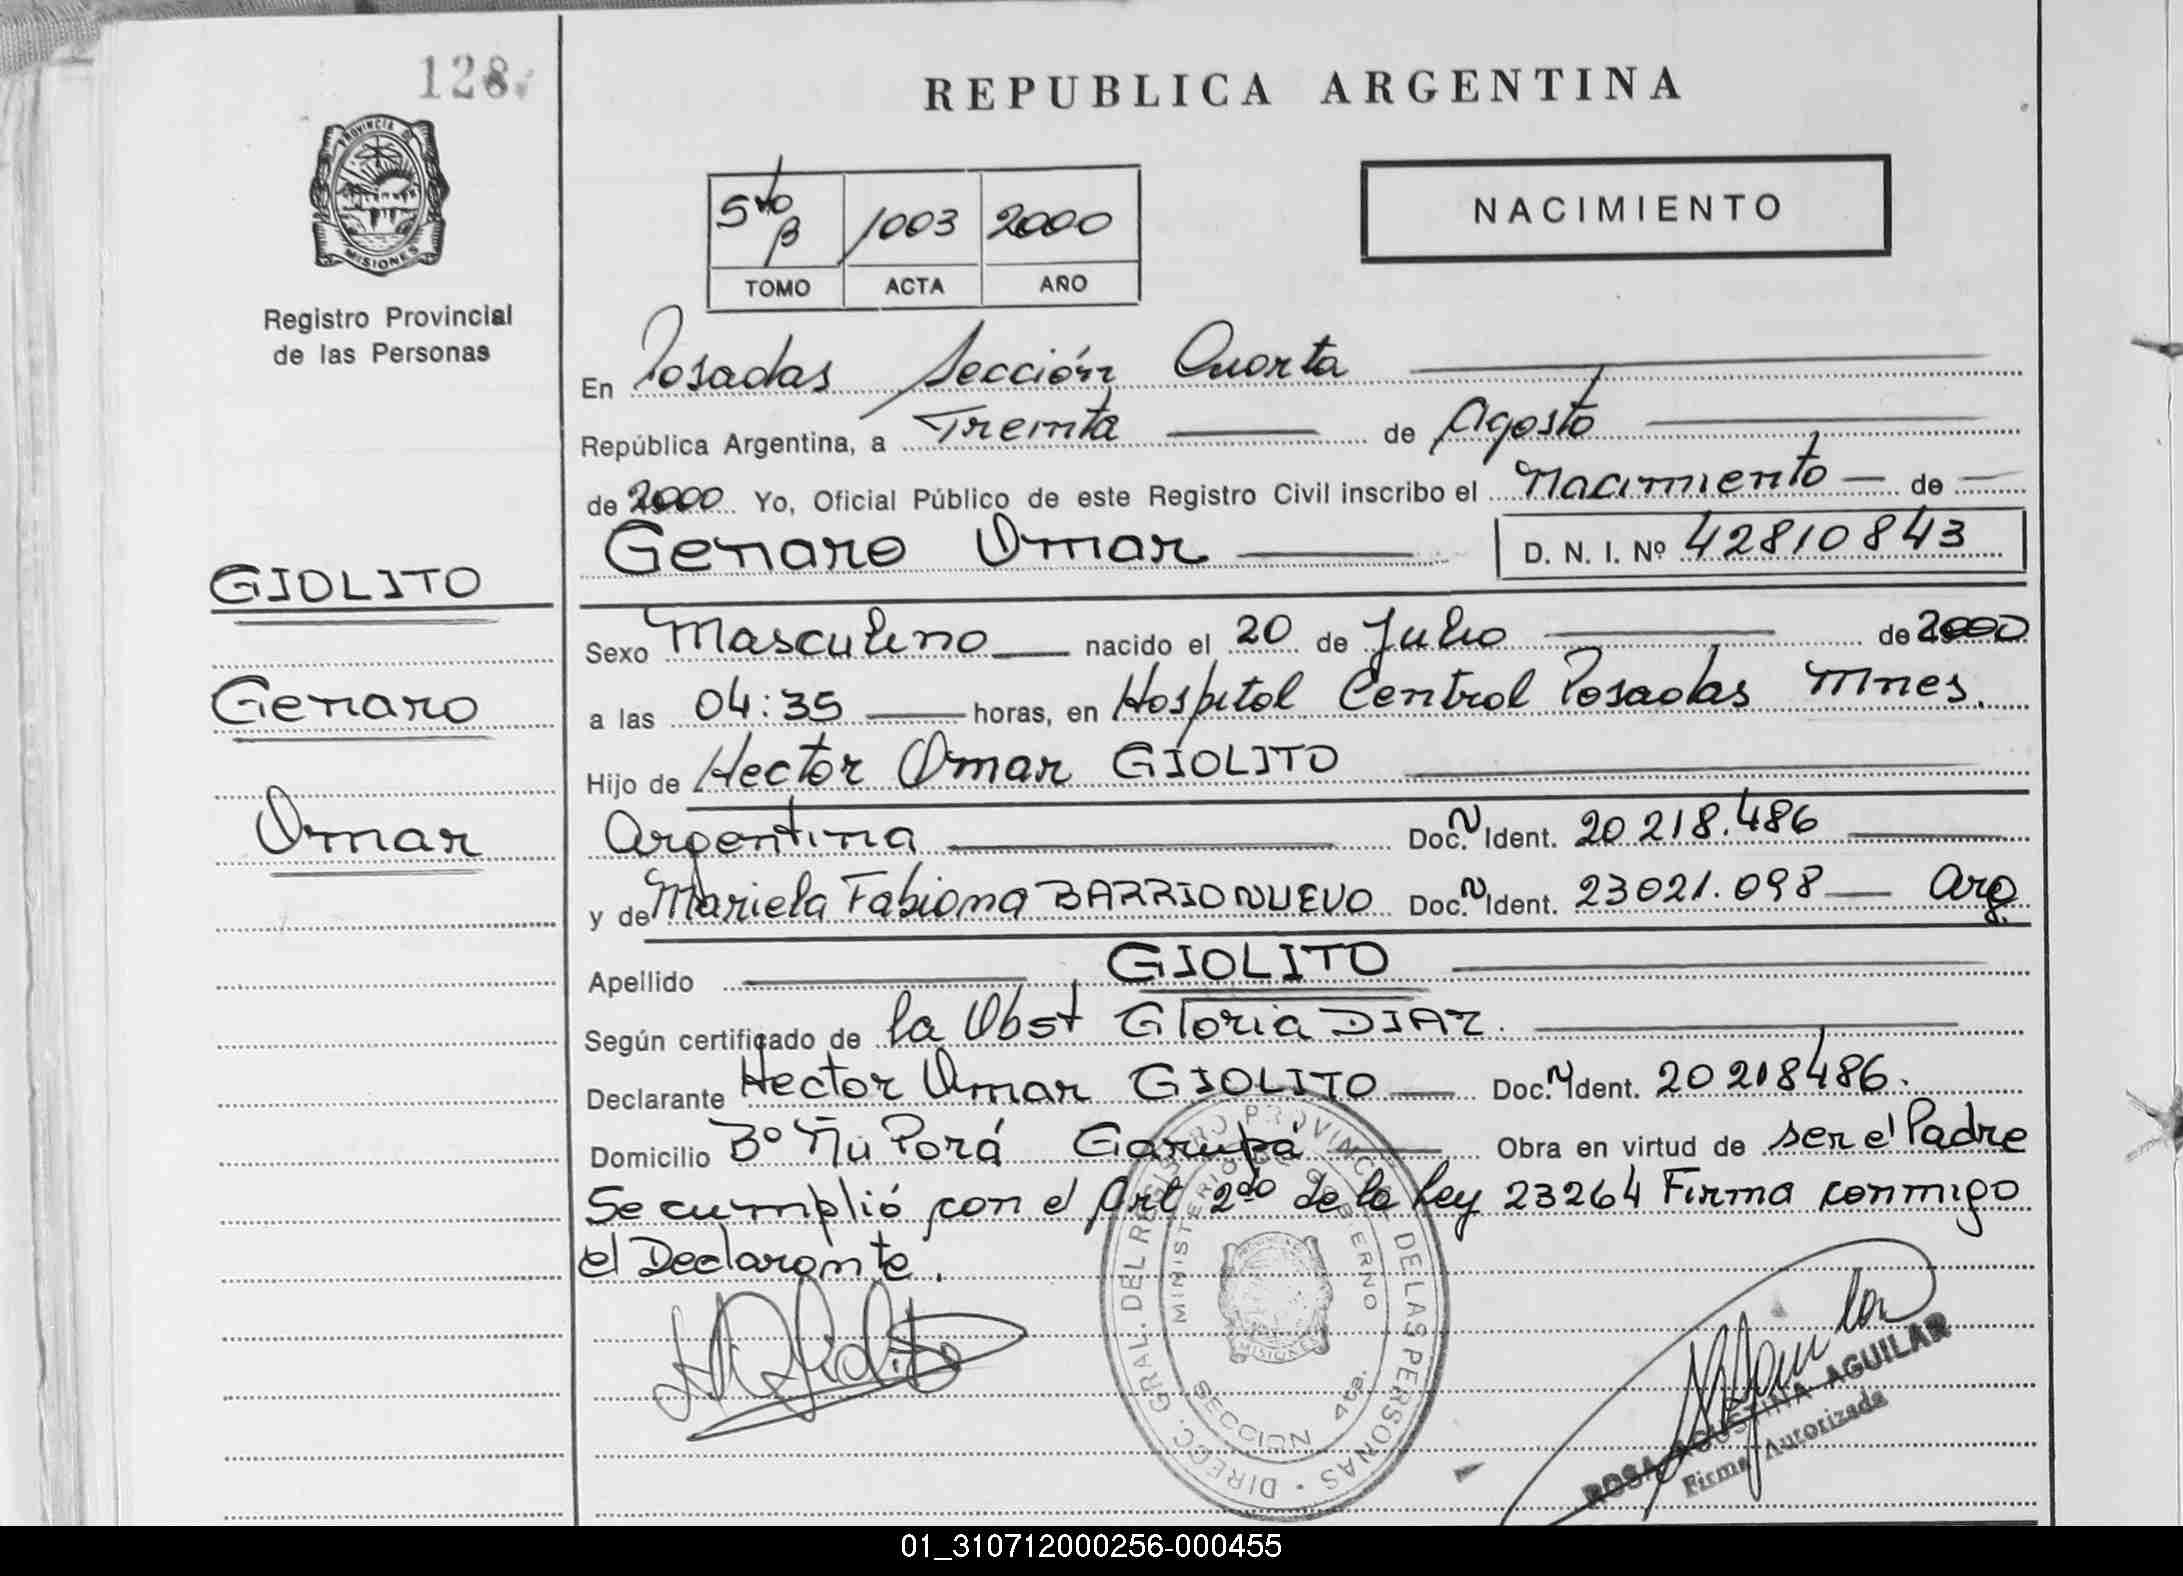 128.
REPUBLICA ARGENTINA
PROVINCIA DE
MISIONES
Registro Provincial
de las Personas
5to B 1003 2000
TOMO ACTA AÑO
NACIMIENTO
En Posadas Sección Cuarta
República Argentina, a Treinta de Agosto
de 2000 Yo, Oficial Público de este Registro Civil inscribo el Nacimiento de
Genaro Omar D. N. I. Nº 42810843
GIOLITO
Genaro
Omar
Sexo Masculino nacido el 20 de Julio de 2000
a las 04:35 horas, en Hospital Central Posadas Mnes.
Hijo de Hector Omar GIOLITO
Argentina Doc. N Ident. 20 218.486
y de Mariela Fabiana BARRIONUEVO Doc. N Ident. 23021.098 Arg.
Apellido GIOLITO
Según certificado de la Obst Gloria DIAZ.
Declarante Hector Omar GIOLITO Doc. N Ident. 20 218486.
Domicilio Bº Ñu Porá Garupá Obra en virtud de ser el Padre
Se cumplió con el Art 2do de la Ley 23264 Firma conmigo
el Declarante.
DIRECC. GRAL. DEL REGISTRO PROVINCIAL DE LAS PERSONAS
MINISTERIO DE GOBIERNO
MISIONES
SECCION 4ta.
ROSA AGUSTINA AGUILAR
Firma Autorizada
01_310712000256-000455